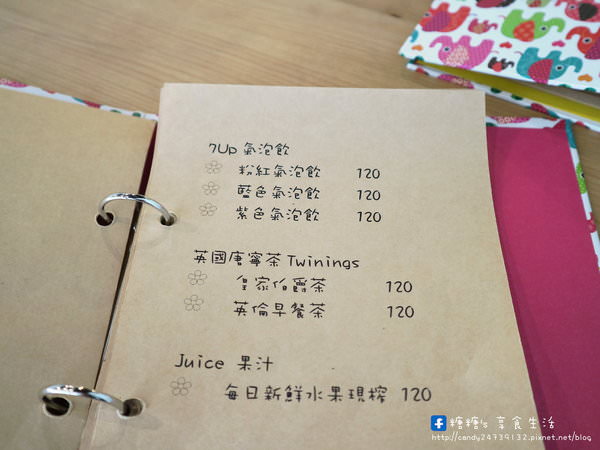 7Up 氣泡飲
粉紅氣泡飲 120
藍色氣泡飲 120
紫色氣泡飲 120
英國唐寧茶 Twinings
皇家伯爵茶 120
英倫早餐茶 120
Juice 果汁
每日新鮮水果現榨 120
糖糖's 享食生活
http://candy24739132.pixnet.net/blog